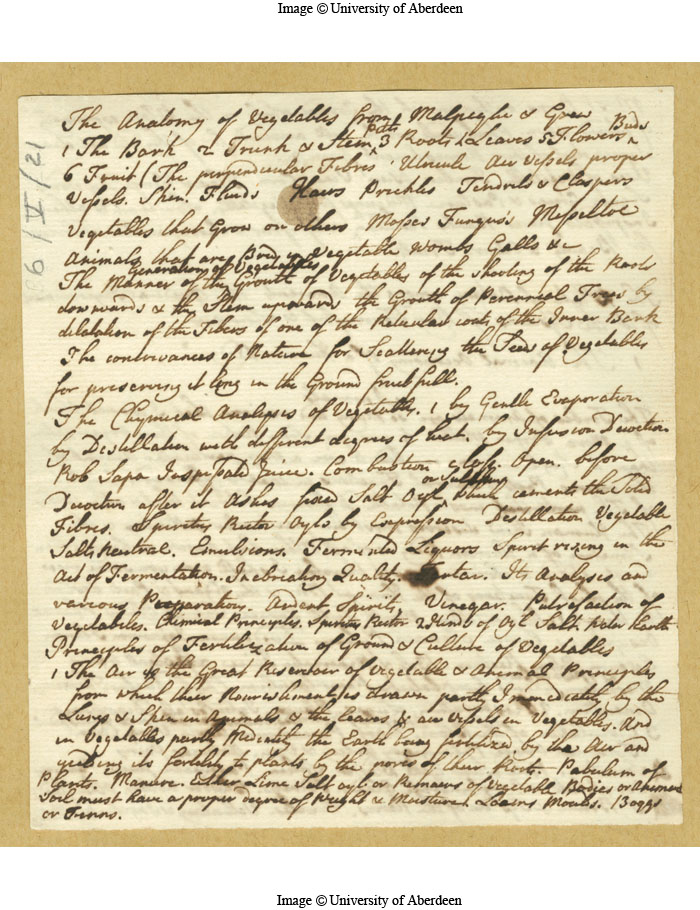 Image © University of Aberdeen
6/V/21
The Anatomy of Vegetables from Malpeghe & Grew
1 The Bark 2 Trunk & Stem Pith 3 Roots 4 Leaves 5 Flowers Buds
6 Fruit (The perpendicular Fibres Utricule Air Vessels proper
Vessels. Skin. Fluids Hairs Prickles Tendrels & Claspers
Vegetables that Grow on others Mosses Fungus's Misseltoe
Animals that are Bred in Vegetable Wombs Galls &c
Generation of Vegetables
The Manner of the Growth of Vegetables of the shooting of the Roots
downwards & the Stem upwards the Growth of Perennial Trees by
dilatation of the Fibers of one of the Reticular coats of the Inner Bark
The contrivances of Nature for Scattering the Seed of Vegetables
for preserving it long in the Ground fruitfull.
The Chymical Analysis of Vegetables. 1 by Gentle Evaporation
by Distillation with different degrees of heat. by Infusion Decoction
Rob Sapa Inspissated Juice. Combustion close. Open. before
Decoction after it Ashes fixed Salt Oyl or Sulphur which cements the Solid
Fibres. Spiritus Rector Oyls by Expression Distillation Vegetable
Salts Neutral. Emulsions. Fermented Liquors Spirit rising in the
Act of Fermentation. Inebreating Quality. Tartar. Its Analysis and
various Preparations. Ardent Spirits, Vinegar. Putrefaction of
Vegetables. Chimical Principles. Spiritus Rector 2 Kinds of Oyl Salt. Water Earth
Principles of Fertilization of Ground & Culture of Vegetables
1 The Air is the Great Reservoir of Vegetable & Animal Principles
from which their Nourishment is drawn partly Immediately by the
Lungs & Skin in Animals & the leaves & air vessels in Vegetables. And
in Vegetables partly Mediately the Earth being fertilized by the Air and
yielding its fertility to plants by the pores of their Roots. Pabulum of
Plants. Manure. Either Lime Salt oyl or Remains of Vegetable Bodies or Animal
Soil must have a proper degree of Weight & Moisture. Loams Moulds. Boggs
or Fenns.
Image © University of Aberdeen